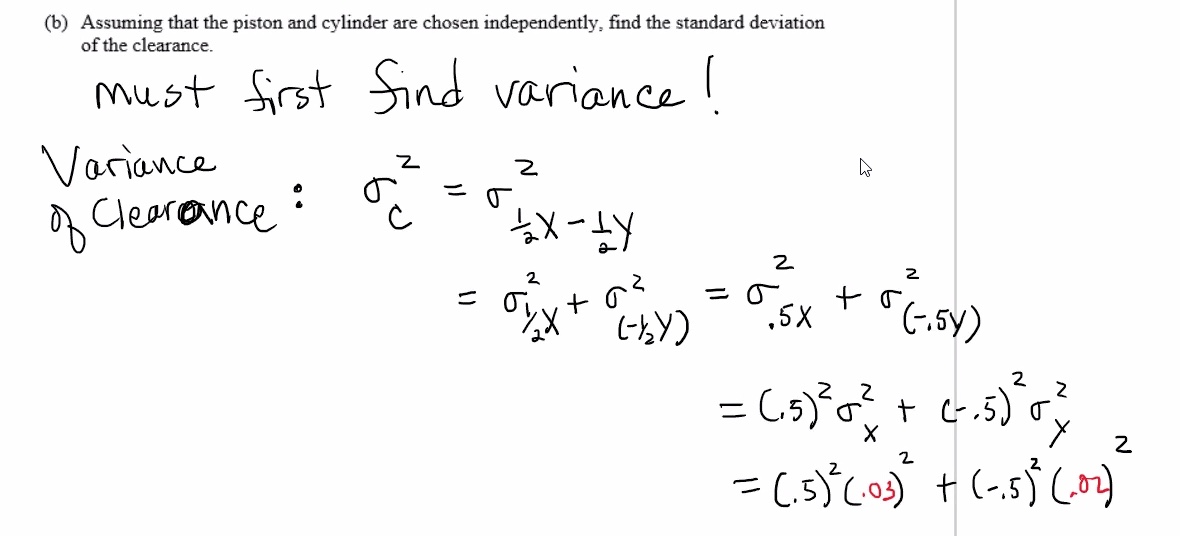 (b) Assuming that the piston and cylinder are chosen independently, find the standard deviation
of the clearance.
must first find variance!
Variance
of Clearance: σ²_C = σ²_{½X-½Y}
= σ²_{½X} + σ²_{(-½Y)} = σ²_{.5X} + σ²_{(-.5Y)}
= (.5)²σ²_X + (-.5)²σ²_Y
= (.5)²(.03)² + (-.5)²(.02)²